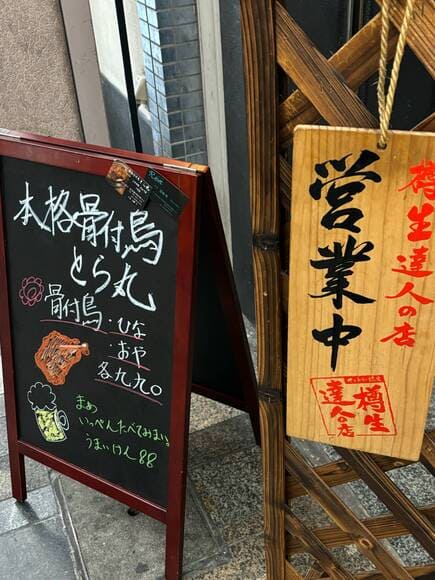 本格骨付鳥
とら丸
骨付鳥・ひな
・おや
各九九〇
まめ
いっぺんたべてみまい
うまいけん88
営業中
樽生達人の店
樽生
達人の店